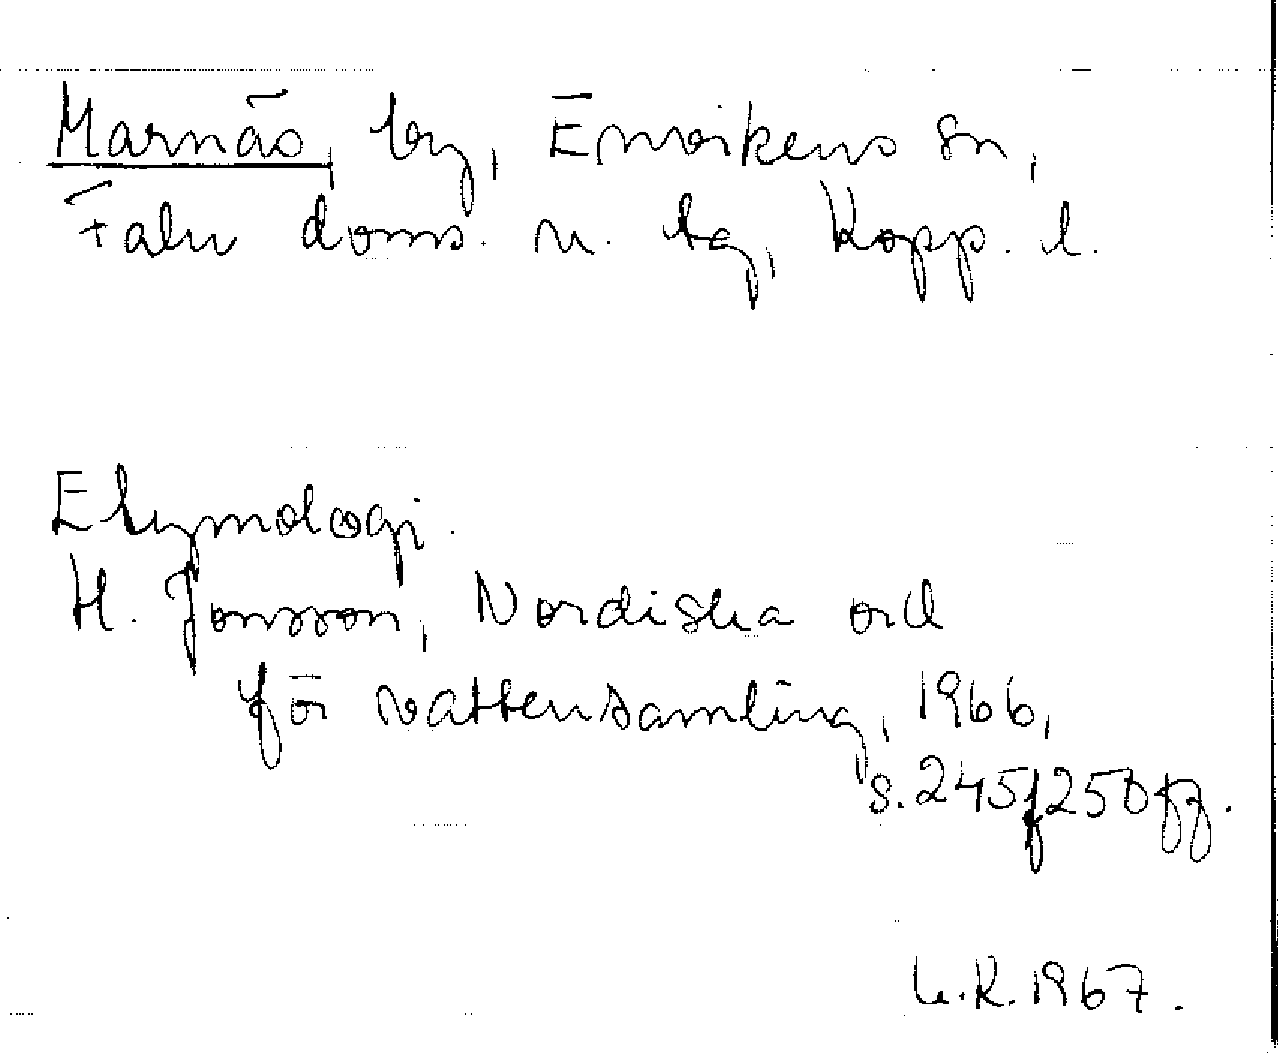 Marnäs, by, Envikens sn,
Falu doms. n. tg, Kopp. l.
Etymologi.
H. Jonsson, Nordiska ord
för vattensamling, 1966,
s. 245f, 250 ff.
L.R. 1967.